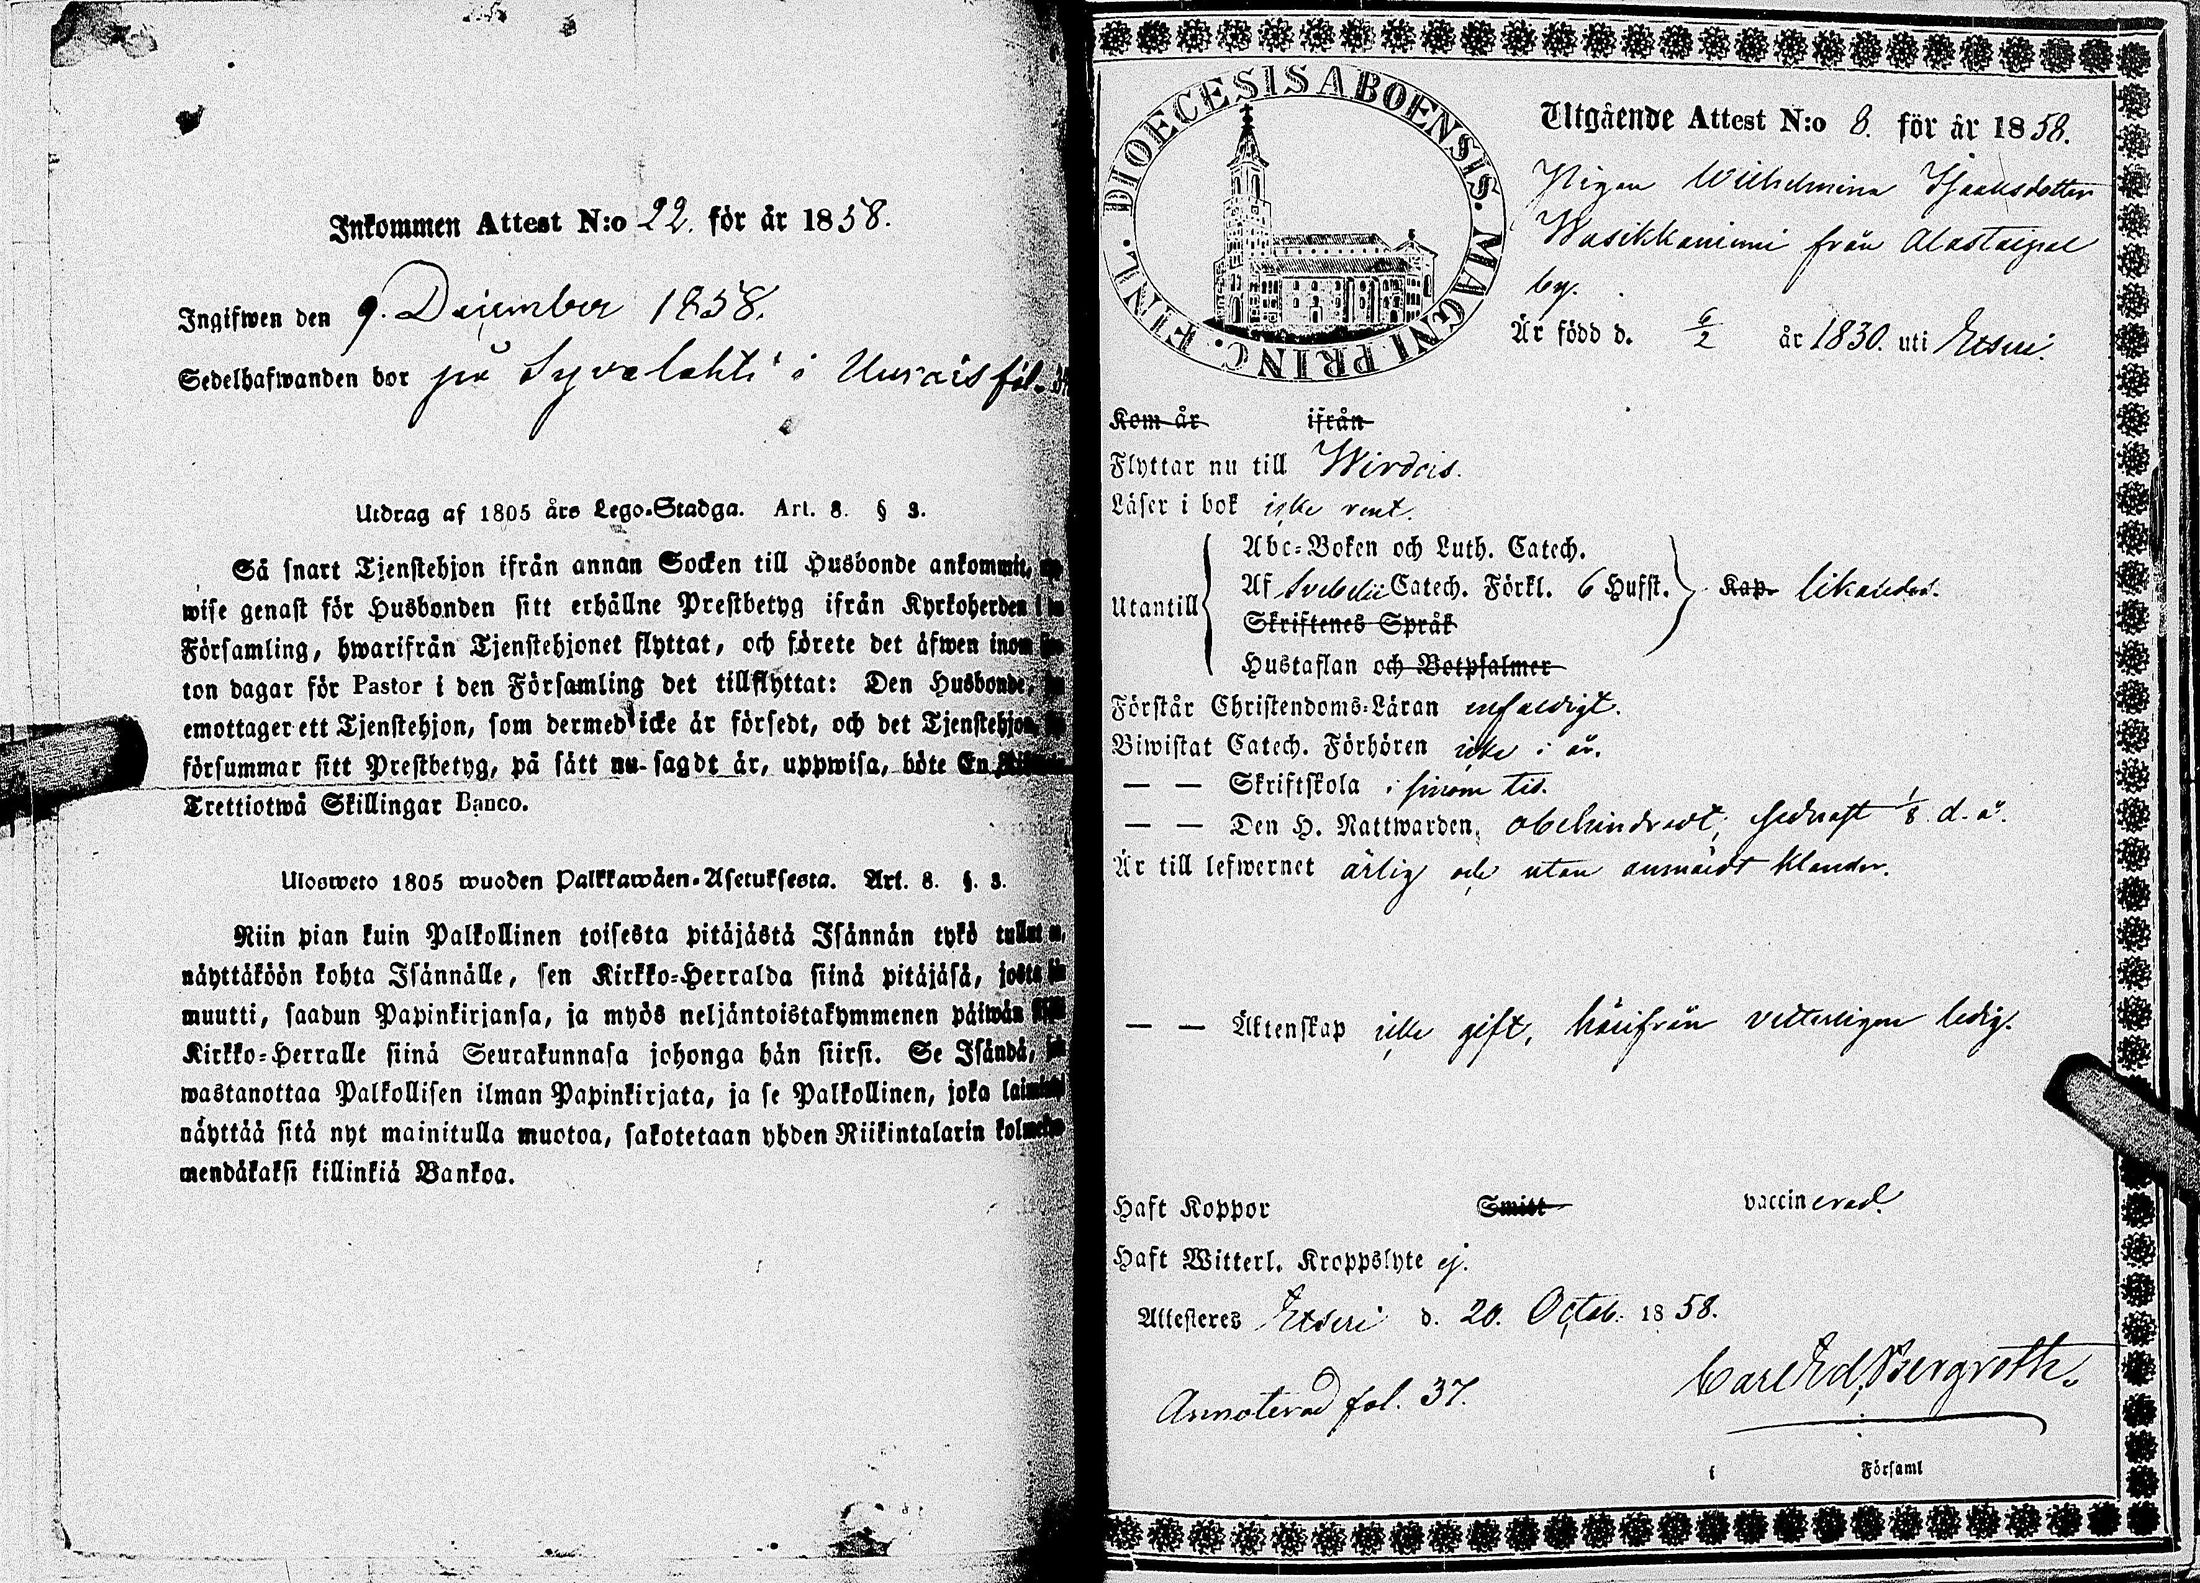 Inkommen Attest N:o 22. för år 1858.
Ingifwen den 9. December 1858.
Sedelhafwanden bor på Syvelahti i
Utdrag af 1805 års Lego-Stadga. Art. 8. § 3.
Så snart Tjenstehjon ifrån annan Socken till Husbonde ankommit,
wise genast för Husbonden sitt erhållne Prestbetyg ifrån Kyrkoherden i
Församling, hwarifrån Tjenstehjonet flyttat, och förete det äfwen inom
ton dagar för Pastor i den Församling det tillflyttat: Den Husbonde,
emottager ett Tjenstehjon, som dermed icke är försedt, och det Tjenstehjon,
försummar sitt Prestbetyg, på sätt nu sagdt är, uppwisa, böte En
Trettiotwå Skillingar Banco.
Ulosweto 1805 wuoden Palkkawäen-Asetuksesta. Art. 8. §. 3.
Niin pian kuin Palkollinen toisesta pitäjästä Isännän tykö tullut
näyttäköön kohta Isännälle, sen Kirkko-Herralda siinä pitäjäsä, josta
muutti, saadun Papinkirjansa, ja myös neljäntoistakymmenen päiwän
Kirkko-Herralle siinä Seurakunnasa johonga hän siirsi. Se Isändä,
wastanottaa Palkollisen ilman Papinkirjata, ja se Palkollinen, joka
näyttää sitä nyt mainitulla muotoa, sakotetaan yhden Riikintalarin
mendäkaksi killinkiä Bankoa.
DIOECESIS ABOENSIS. MAGNI PRINC. FINL.
Utgående Attest N:o 8. för år 1858.
Pigan Wilhelmina Isaaksdotter
från Alastaipal
by.
Är född d. 6/2 år 1830. uti Etseri.
Kom år ifrån
Flyttar nu till Wirdois.
Läser i bok icke rent.
Abc-Boken och Luth. Catech.
Utantill Af Svebelii Catech. Förkl. 6 Hufst. Kap. likaledes.
Skriftenes Språk
Hustaflan och Botpsalmer
Förstår Christendoms-Läran enfaldigt.
Biwistat Catech. Förhören icke i år.
— — Skriftskola i sinom tid.
— — Den H. Nattwarden, obehindradt, sednast 1/8 d. å.
Är till lefwernet ärlig och utan anmärkt klander.
— — Äktenskap icke gift, härifrån veterligen ledig.
Haft Koppor Smitt vaccinerad.
Haft Witterl. Kroppslyte ej.
Attesteres Etseri d. 20. Octob. 1858.
Carl Ed. Bergroth.
Annoterad fol. 37.
i Församl